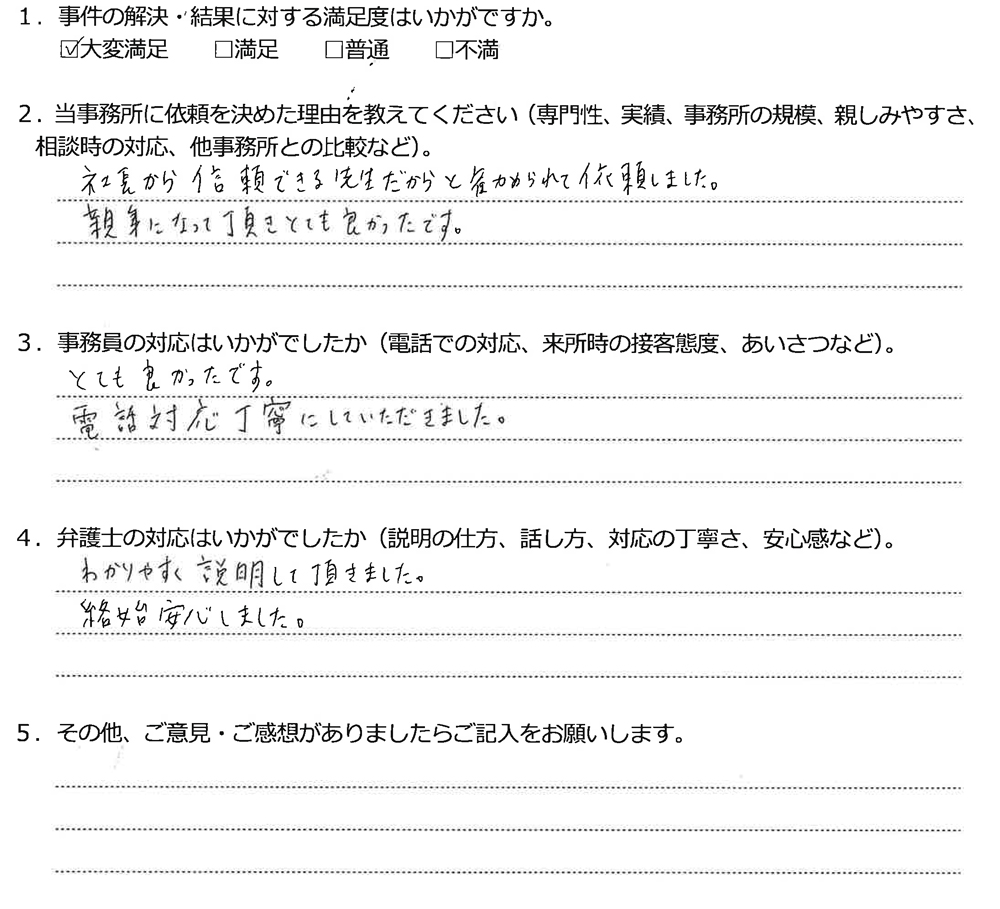 1．事件の解決・結果に対する満足度はいかがですか。
☑大変満足 □満足 □普通 □不満
2．当事務所に依頼を決めた理由を教えてください（専門性、実績、事務所の規模、親しみやすさ、
相談時の対応、他事務所との比較など）。
社長から信頼できる先生だからと進められて依頼しました。
親身になって頂きとても良かったです。
3．事務員の対応はいかがでしたか（電話での対応、来所時の接客態度、あいさつなど）。
とても良かったです。
電話対応丁寧にしていただきました。
4．弁護士の対応はいかがでしたか（説明の仕方、話し方、対応の丁寧さ、安心感など）。
わかりやすく説明して頂きました。
終始安心しました。
5．その他、ご意見・ご感想がありましたらご記入をお願いします。